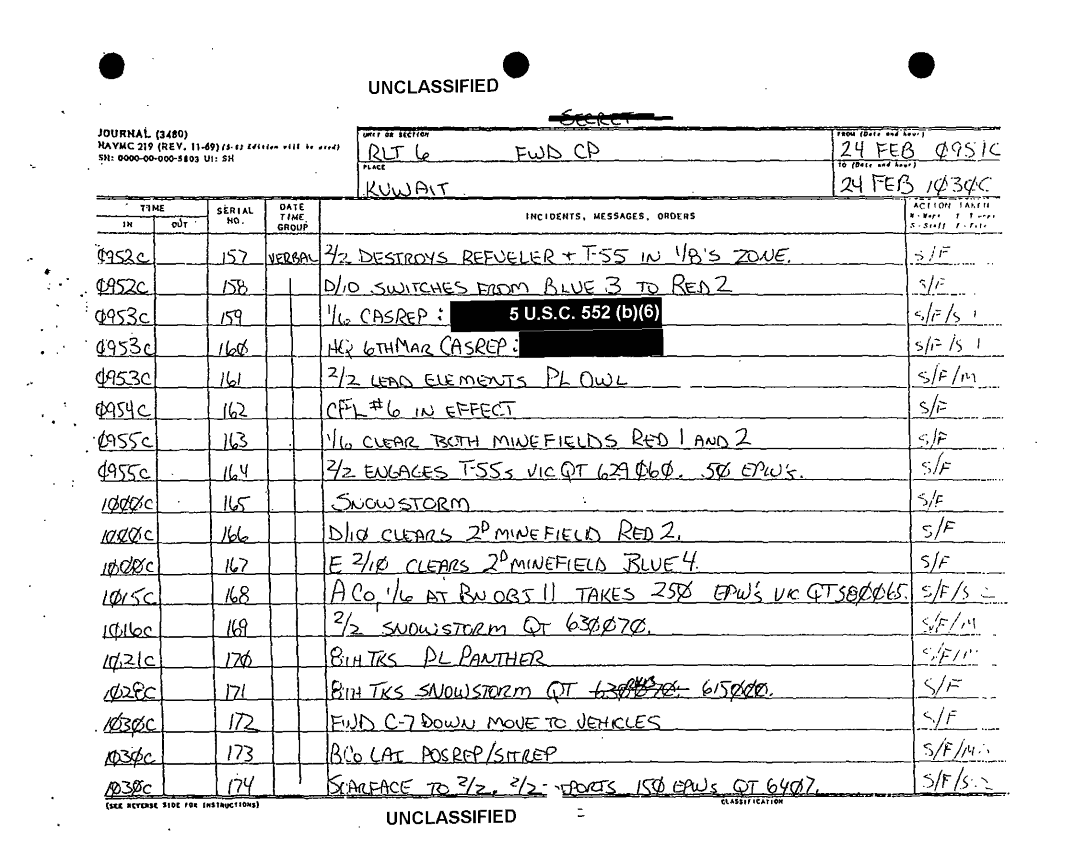 UNCLASSIFIED
SECRET
JOURNAL (3480)
NAVMC 219 (REV. 11-69) (5-63 Edition will be used)
SN: 0000-00-000-5803 UI: SH
UNIT OR SECTION
RLT 6 FWD CP
FROM (Date and hour)
24 FEB 0951C
PLACE
KUWAIT
TO (Date and hour)
24 FEB 1030C
TIME SERIAL NO. DATE TIME GROUP INCIDENTS, MESSAGES, ORDERS ACTION TAKEN
IN OUT M - Maps T - Troops
S - Staff F - File
0952C 157 VERBAL 2/2 DESTROYS REFUELER + T-55 IN 1/8'S ZONE. S/F
0952C 158 D/10 SWITCHES FROM BLUE 3 TO RED 2 S/F
0953C 159 1/6 CASREP: 5 U.S.C. 552 (b)(6) S/F/S 1
0953C 160 HQ 6THMAR CASREP: S/F/S 1
0953C 161 2/2 LEAD ELEMENTS PL OWL S/F/M
0954C 162 CFL #6 IN EFFECT S/F
0955C 163 1/6 CLEAR BOTH MINEFIELDS RED 1 AND 2 S/F
0955C 164 2/2 ENGAGES T-55s VIC QT 629060. 50 EPW'S. S/F
1000C 165 SNOWSTORM S/F
1000C 166 D/10 CLEARS 2D MINEFIELD RED 2. S/F
1000C 167 E 2/10 CLEARS 2D MINEFIELD BLUE 4. S/F
1015C 168 A CO, 1/6 AT BN OBJ 11 TAKES 250 EPW'S VIC QT580065. S/F/S
1016C 169 2/2 SNOWSTORM QT 630070. S/F/M
1021C 170 8TH TKS PL PANTHER S/F/M
1028C 171 8TH TKS SNOWSTORM QT 615000. S/F
1030C 172 FWD C-7 DOWN MOVE TO VEHICLES S/F
1030C 173 B CO LAI POSREP/SITREP S/F/M
1030C 174 SCARFACE TO 2/2. 2/2 150 EPW'S QT 6407. S/F/S
(SEE REVERSE SIDE FOR INSTRUCTIONS) CLASSIFICATION
UNCLASSIFIED